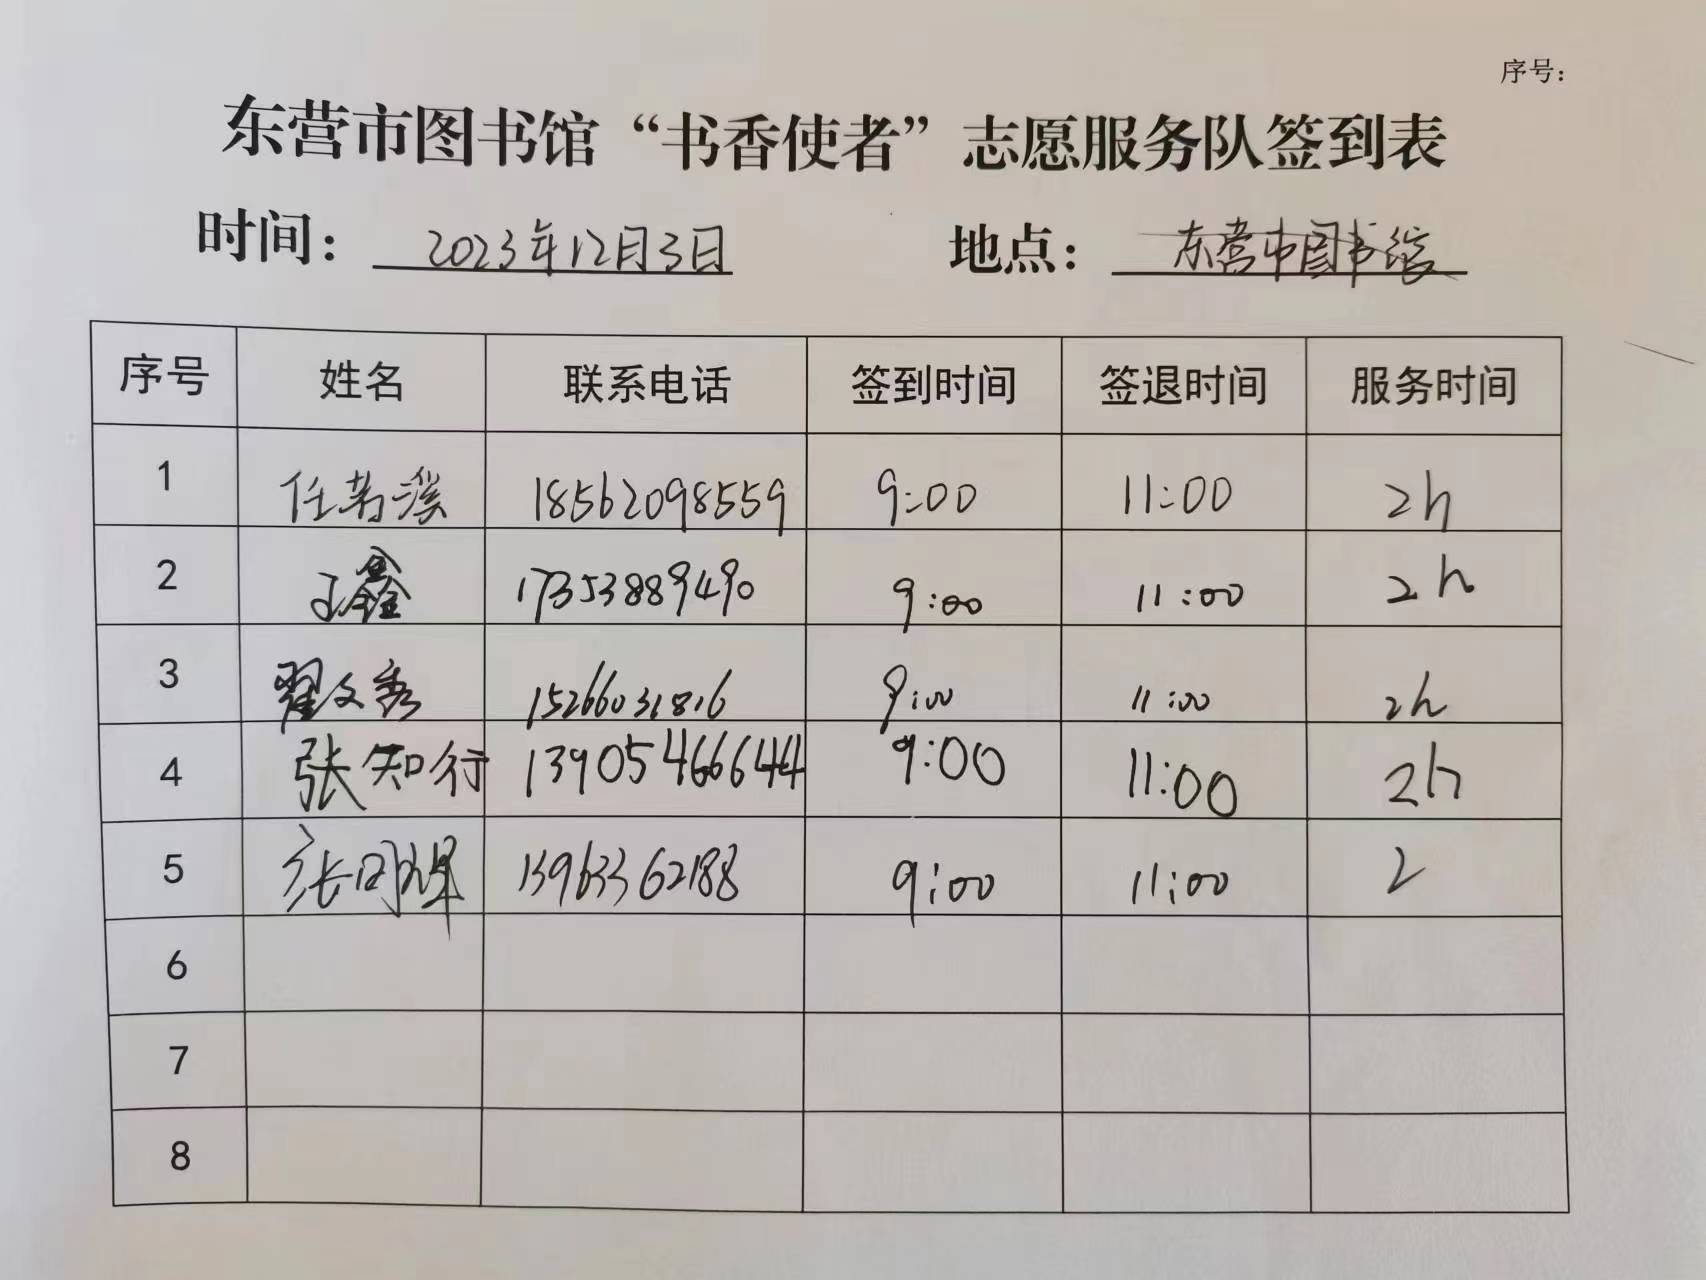 序号：
东营市图书馆“书香使者”志愿服务队签到表
时间： 2023年12月3日 地点： 东营市图书馆
序号 姓名 联系电话 签到时间 签退时间 服务时间
1 任芮溪 18562098559 9:00 11:00 2h
2 王鑫 17353889490 9:00 11:00 2h
3 翟文秀 15266031816 9:00 11:00 2h
4 张知行 13905466644 9:00 11:00 2h
5 张 13963362188 9:00 11:00 2
6
7
8